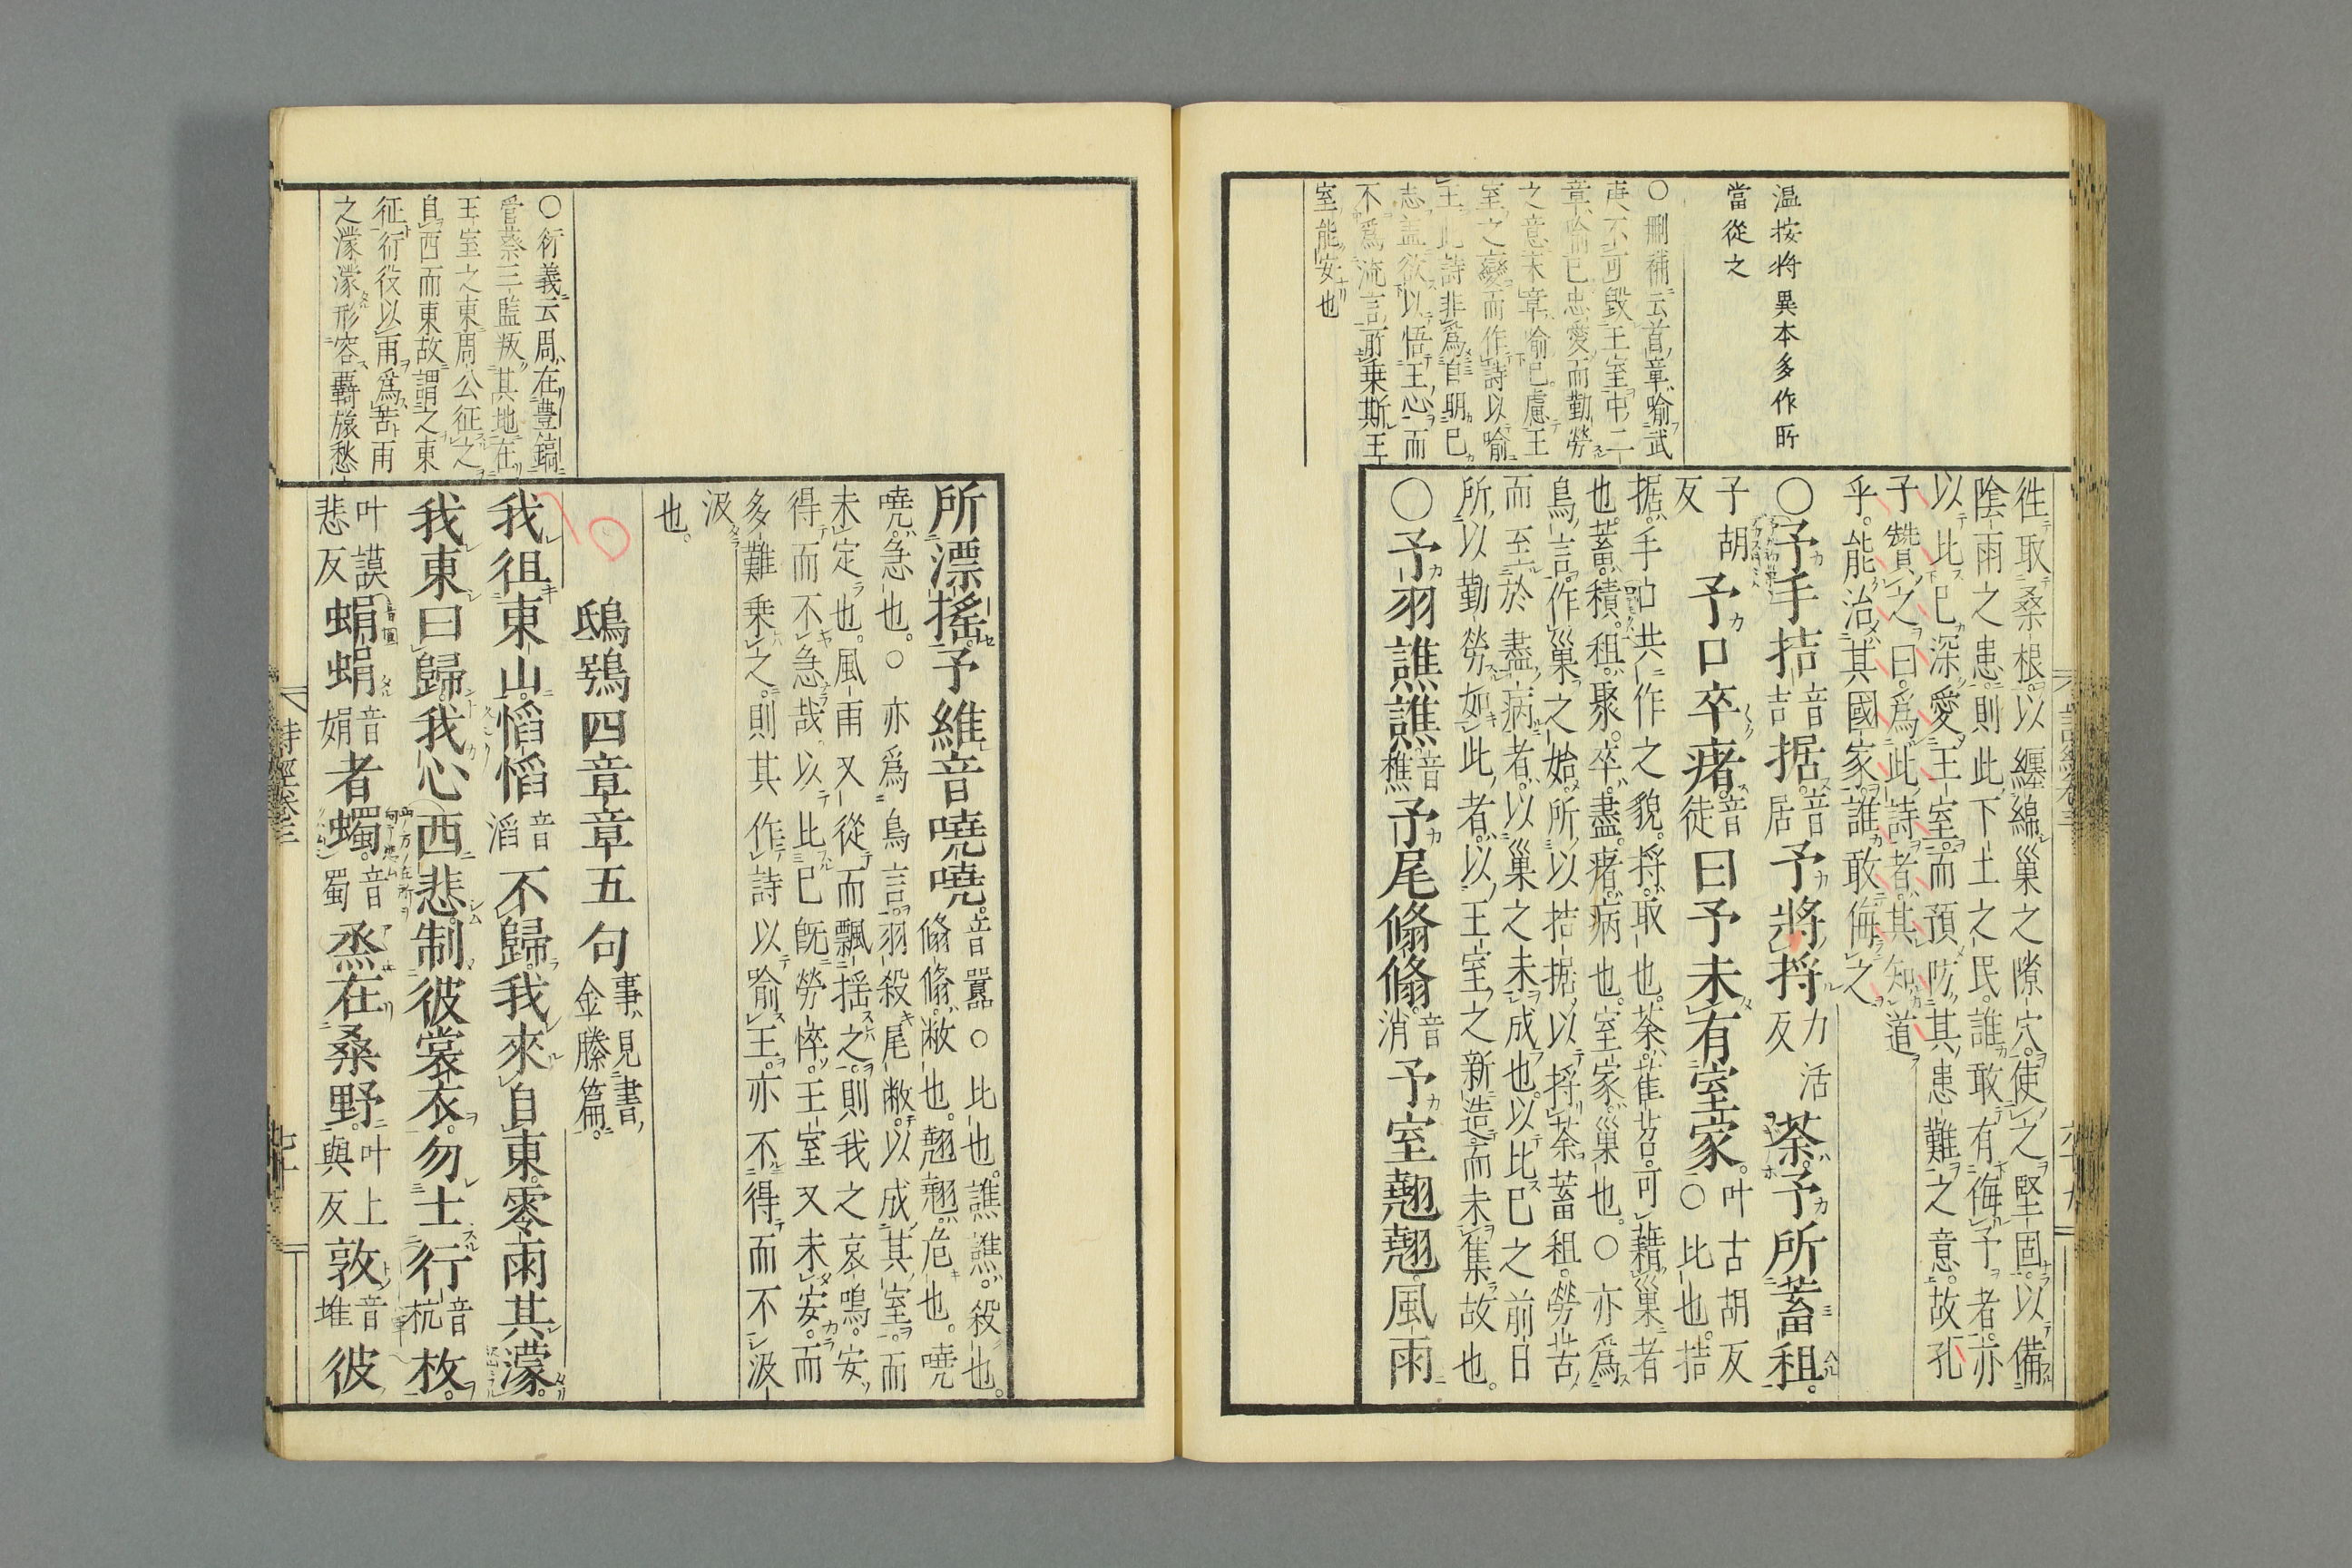 温按捋異本多作所
當從之
○刪補云首章喻武
庚不可毀王室中二
章喻已忠愛而勤勞
之意末章喻已慮王
室之變而作詩以喻
王此詩非爲自明已
志盖欲以悟王心而
不爲流言所乗斯王
室能安也
徃取桑根以纏綿巢之隙穴使之堅固以備
陰雨之患則此下土之民誰敢有侮予者亦
以比已深愛王室而預防其患難之意故孔
子贊之曰爲此詩者其知道
乎能治其國家誰敢侮之
○予手拮音吉据音居予將捋力活反荼予所蓄租
子胡反予口卒瘏音徒曰予未有室家叶古胡反○比也拮
据手口共作之貌捋取也荼萑苕可藉巢者
也蓄積租聚卒盡瘏病也室家巢也○亦爲
鳥言作巢之始所以拮据以捋荼蓄租勞苦
而至於盡病者以巢之未成也以比已之前日
所以勤勞如此者以王室之新造而未集故也
○予羽譙譙音樵予尾翛翛音消予室翹翹風雨
所漂搖予維音嘵嘵音囂○比也譙譙殺也
翛翛敝也翹翹危也嘵
嘵急也○亦爲鳥言羽殺尾敝以成其室而
未定也風雨又從而飄揺之則我之哀鳴安
得而不急哉以比已旣勞悴王室又未安而
多難乗之則其作詩以喻王亦不得而不汲
汲
也
鴟鴞四章章五句事見書金縢篇
○衍義云周在豊鎬
管蔡三監叛其地在
王室之東周公征之
自西而東故謂之東
征行役以雨爲苦雨
之濛濛形容羇旅愁
我徂東山慆慆音滔不歸我來自東零雨其濛
我東曰歸我心西悲制彼裳衣勿士行音杭枚
叶謨悲反蜎蜎音娟者蠋音蜀烝在桑野叶上與反敦音堆彼
詩經卷三